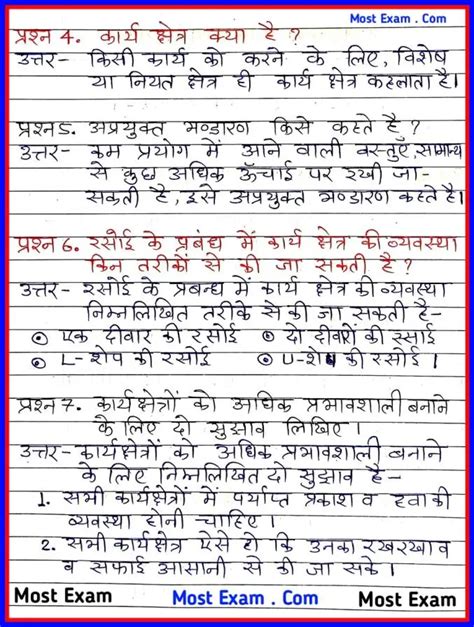 Most Exam . Com
प्रश्न 4. कार्य क्षेत्र क्या है ?
उत्तर- किसी कार्य को करने के लिए, विशेष
या नियत क्षेत्र ही कार्य क्षेत्र कहलाता है।
प्रश्न 5. अप्रयुक्त भण्डारण किसे कहते है ?
उत्तर- कम प्रयोग में आने वाली वस्तुएँ, सामान्य
से कुछ अधिक ऊँचाई पर रखी जा-
सकती है, इसे अप्रयुक्त भण्डारण कहते है।
प्रश्न 6. रसोई के प्रबंध में कार्य क्षेत्र की व्यवस्था
किन तरीकों से की जा सकती है ?
उत्तर- रसोई के प्रबन्ध में कार्य क्षेत्र की व्यवस्था
निम्नलिखित तरीके से की जा सकती है-
⊙ एक दीवार की रसोई ⊙ दो दीवारों की रसोई
⊙ L-शेप की रसोई ⊙ U-शेप की रसोई ।
प्रश्न 7. कार्यक्षेत्रों को अधिक प्रभावशाली बनाने
के लिए दो सुझाव लिखिए ।
उत्तर- कार्यक्षेत्रों को अधिक प्रभावशाली बनाने
के लिए निम्नलिखित दो सुझाव है-
1. सभी कार्यक्षेत्रों में पर्याप्त प्रकाश व हवा की
व्यवस्था होनी चाहिए ।
2. सभी कार्यक्षेत्र ऐसे हो कि उनका रखरखाव
व सफाई आसानी से की जा सके ।
Most Exam Most Exam . Com Most Exam